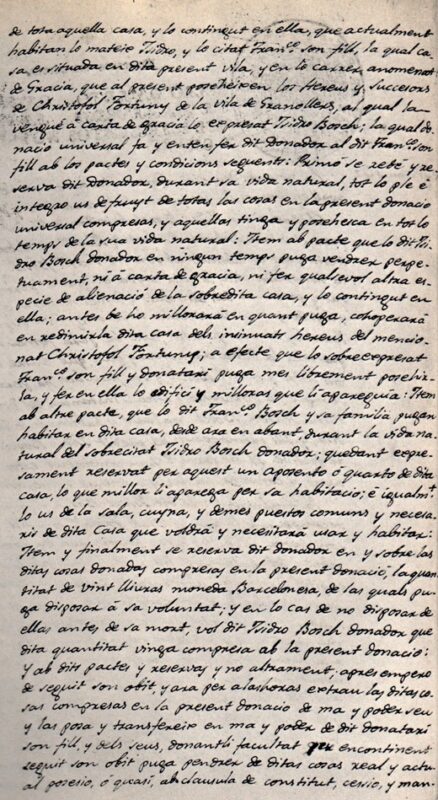 de tota aquella casa, y lo contingut en ella, que actualment
habitan lo mateix Isidro, y lo citat Franco. son fill, la qual ca-
sa, es situada en dita present vila, y en lo carrer anomenat
de Gracia, que al present posseheixen los Hereus y successors
de Christofol Fortuny de la vila de Granollers, al qual la
venguè á carta de gracia lo expresat Isidro Bosch; la qual do-
nació universal fa y enten fer dit donador al dit Franco. son
fill ab los pactes y condicions seguents: Primo se rebé y re-
serva dit donador, durant sa vida natural, tot lo ple é
integro us de fruyt de totas las cosas en la present donacio
universal compresas, y aquellas tinga y possehesca en tot lo
temps de la sua vida natural: Item ab pacte que lo dit Isi-
dro Bosch donador en ningun temps puga vendrer perpe-
tuament, ni á carta de gracia, ni fer qualsevol altra es-
pecie de alienació de la sobredita casa, y lo contingut en
ella; antes be ho millorará en quant puga, cohoperará
en redimirla dita casa dels insinuats hereus del mencio-
nat Christofol Fortuny; a efecte que lo sobreexpresat
Franco. son fill y donatari puga mes librement posehir-
la, y fer en ella lo edifici y milloras que li apareguia: Item
ab altre pacte, que lo dit Franco. Bosch y sa familia pugan
habitar en dita casa, desde ara en abant, durant la vida na-
tural del sobrecitat Isidro Bosch donador; quedant expre-
sament reservat per aquest un aposento ó quarto de dita
casa, lo que millor li aparega per sa habitacio; é igualmt.
lo us de la sala, cuyna, y demes puestos comuns y necesa-
ris de dita Casa que voldrá y necesitará usar y habitar:
Item y finalment se reserva dit donador en y sobre las
ditas cosas donadas compresas en la present donació, la quan-
titat de vint lliuras moneda Barcelonesa, de las quals pu-
ga disposar á sa voluntat; y en lo cas de no disposar de
ellas antes de sa mort, vol dit Isidro Bosch donador que
dita quantitat vinga compresa ab la present donació:
Y ab dits pactes y reservas y no altrament, apres empero
de seguit son obit, y ara per alashoras extrau las ditas co-
sas compresas en la present donacio de ma y poder seu
y las posa y transfereix en ma y poder de dit donatari
son fill, y dels seus, donantli facultat que encontinent
seguit son obit puga pendrer de ditas cosas real y actu-
al possesio, ó quasi, ab clausula de constitut, cessio, y man-